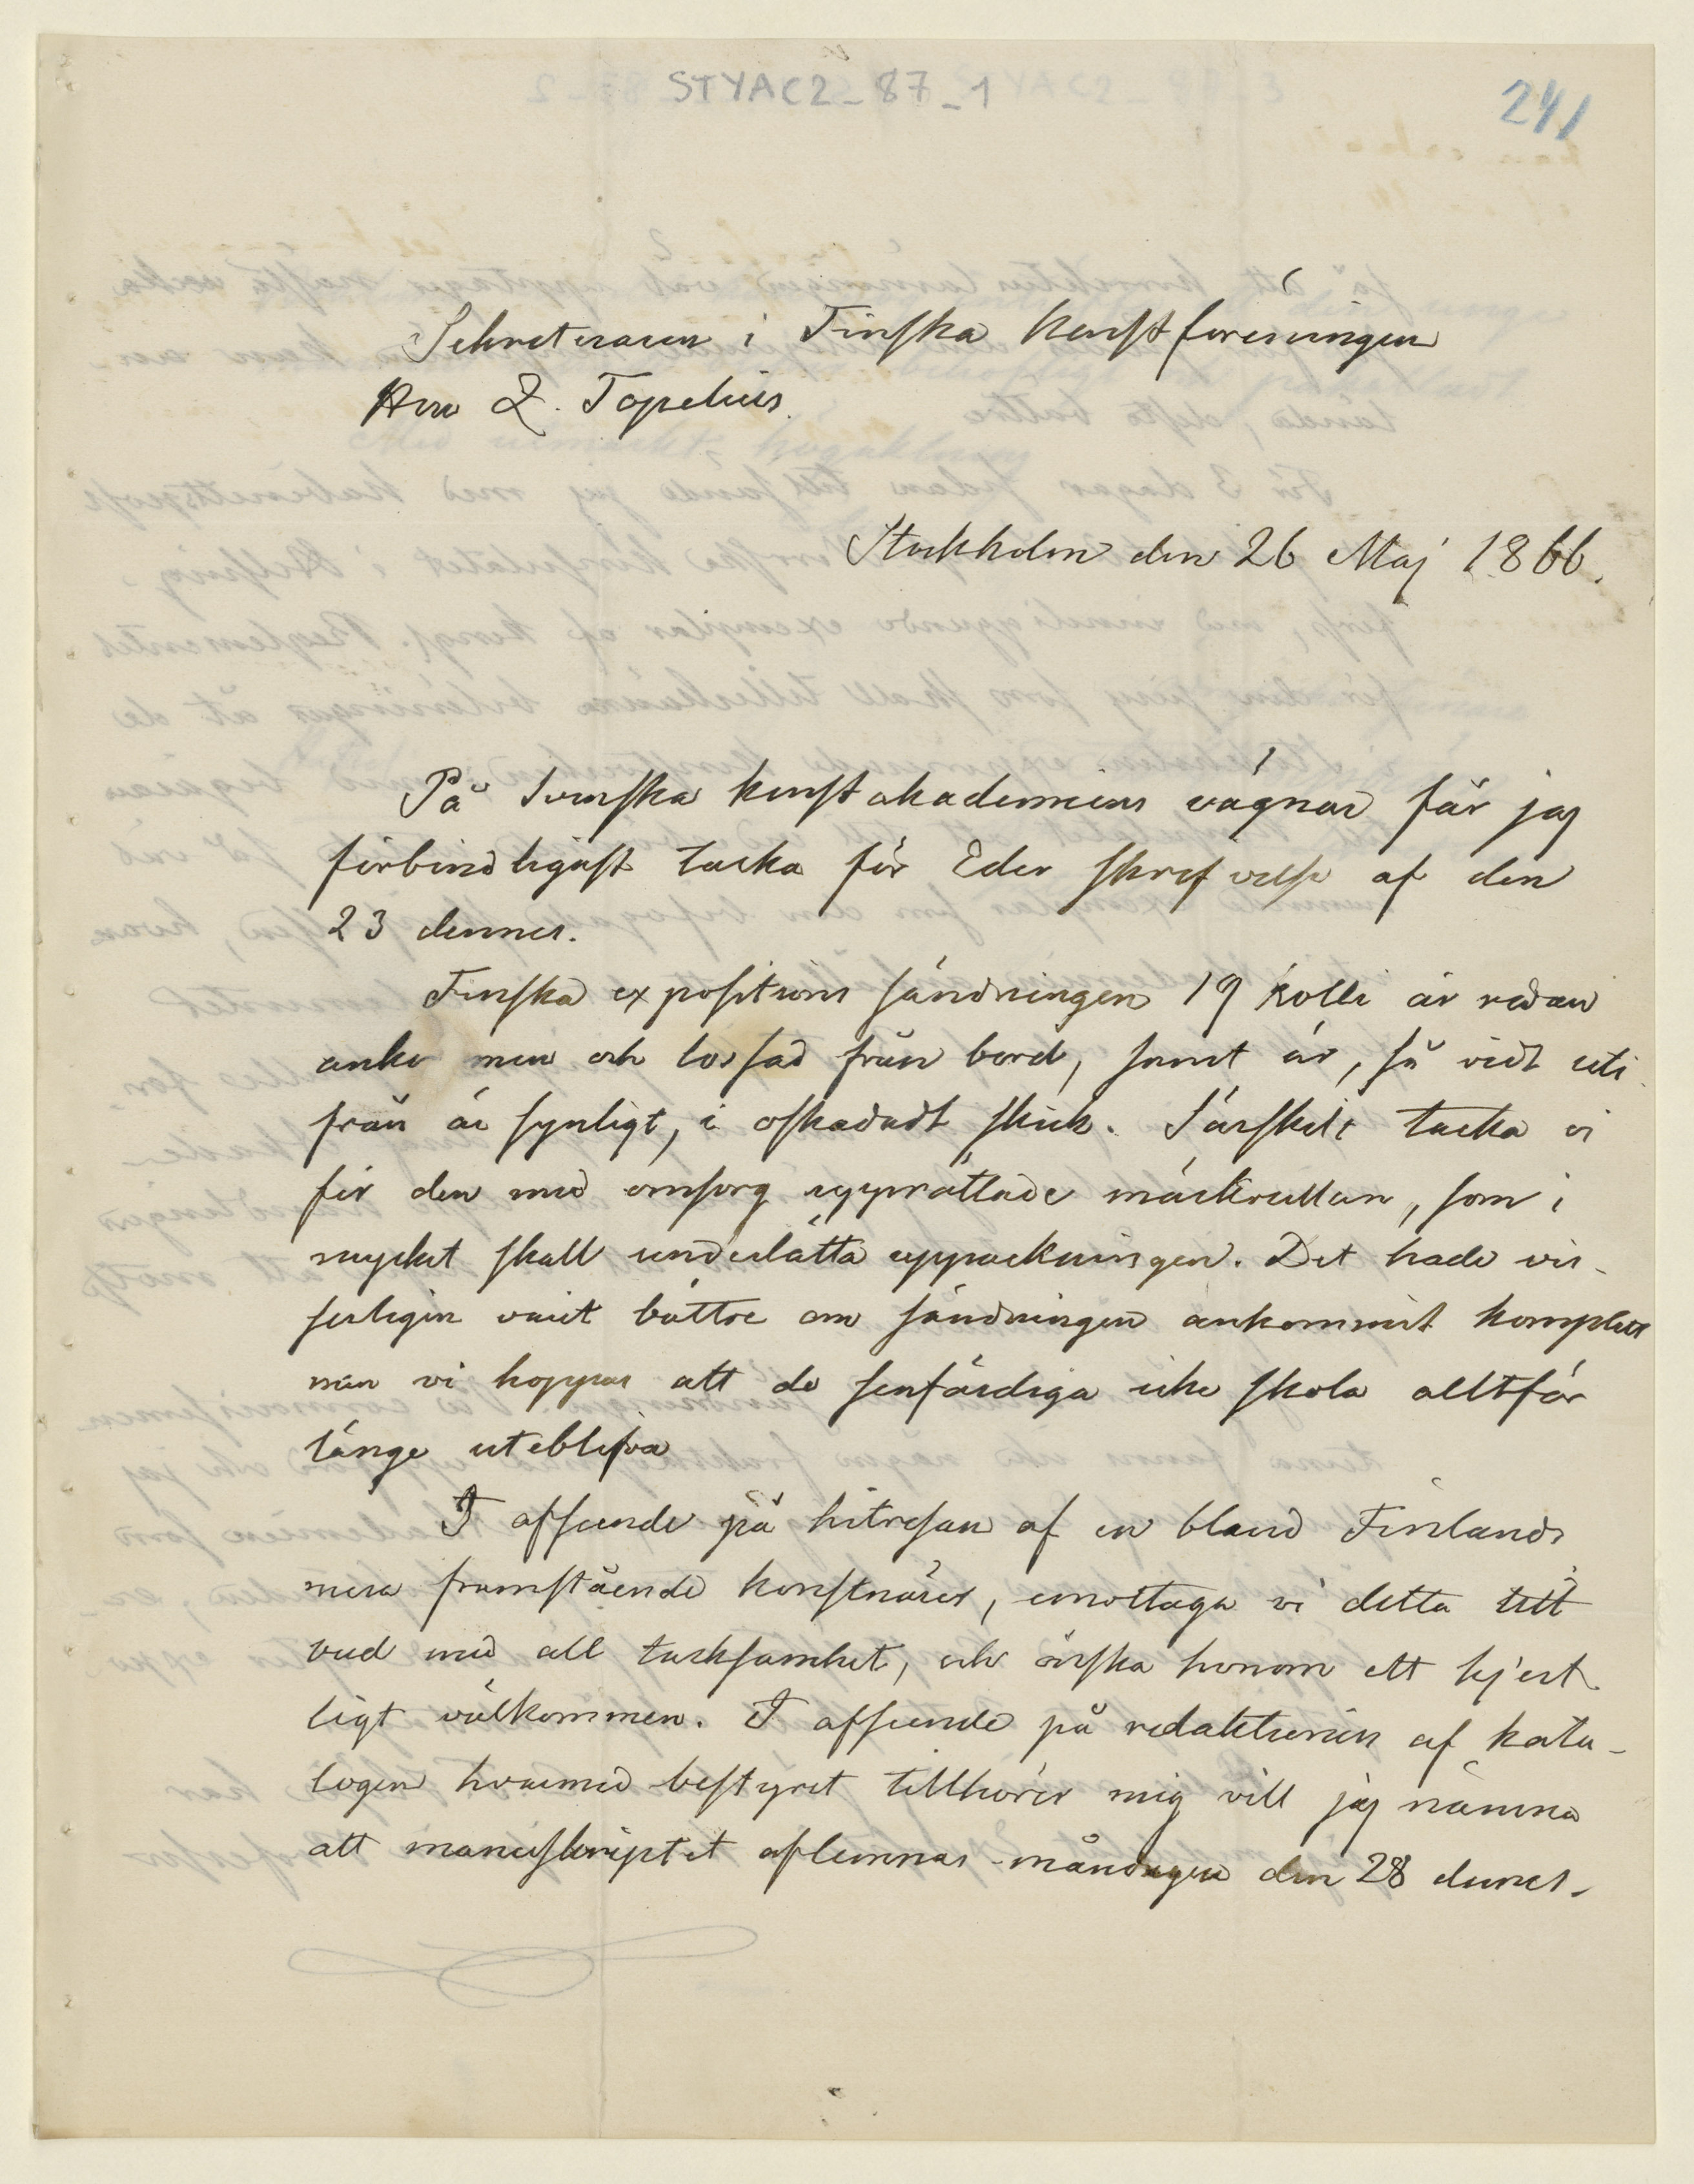 STYAC2_87_1
241
Sekreteraren i Finska Konstföreningen
Herr Z. Topelius.
Stockholm den 26 Maj 1866.
På Svenska konstakademiens vägnar får jag
förbindligast tacka för Eder skrifvelse af den
23 dennes.
Finska expositions sändningen 19 kolli är redan
ankommen och lossad från bord, samt är, så vidt uti
från är synligt, i oskadadt skick. Särskilt tacka vi
för den med omsorg upprättade märkrullan, som i
mycket skall underlätta uppackningen. Det hade vis-
serligen varit bättre om sändningen ankommit komplett
men vi hoppas att de senfärdiga icke skola alltför
länge uteblifva
I afseende på hitresan af en bland Finlands
mera framstående konstnärer, emottaga vi detta till
bud med all tacksamhet, och önska honom ett hjert-
ligt välkommen. I afseende på redaktionen af kata-
logen hvarmed bestyret tillhörer mig vill jag nämna
att manuskriptet aflemnas måndagen den 28 dennes.